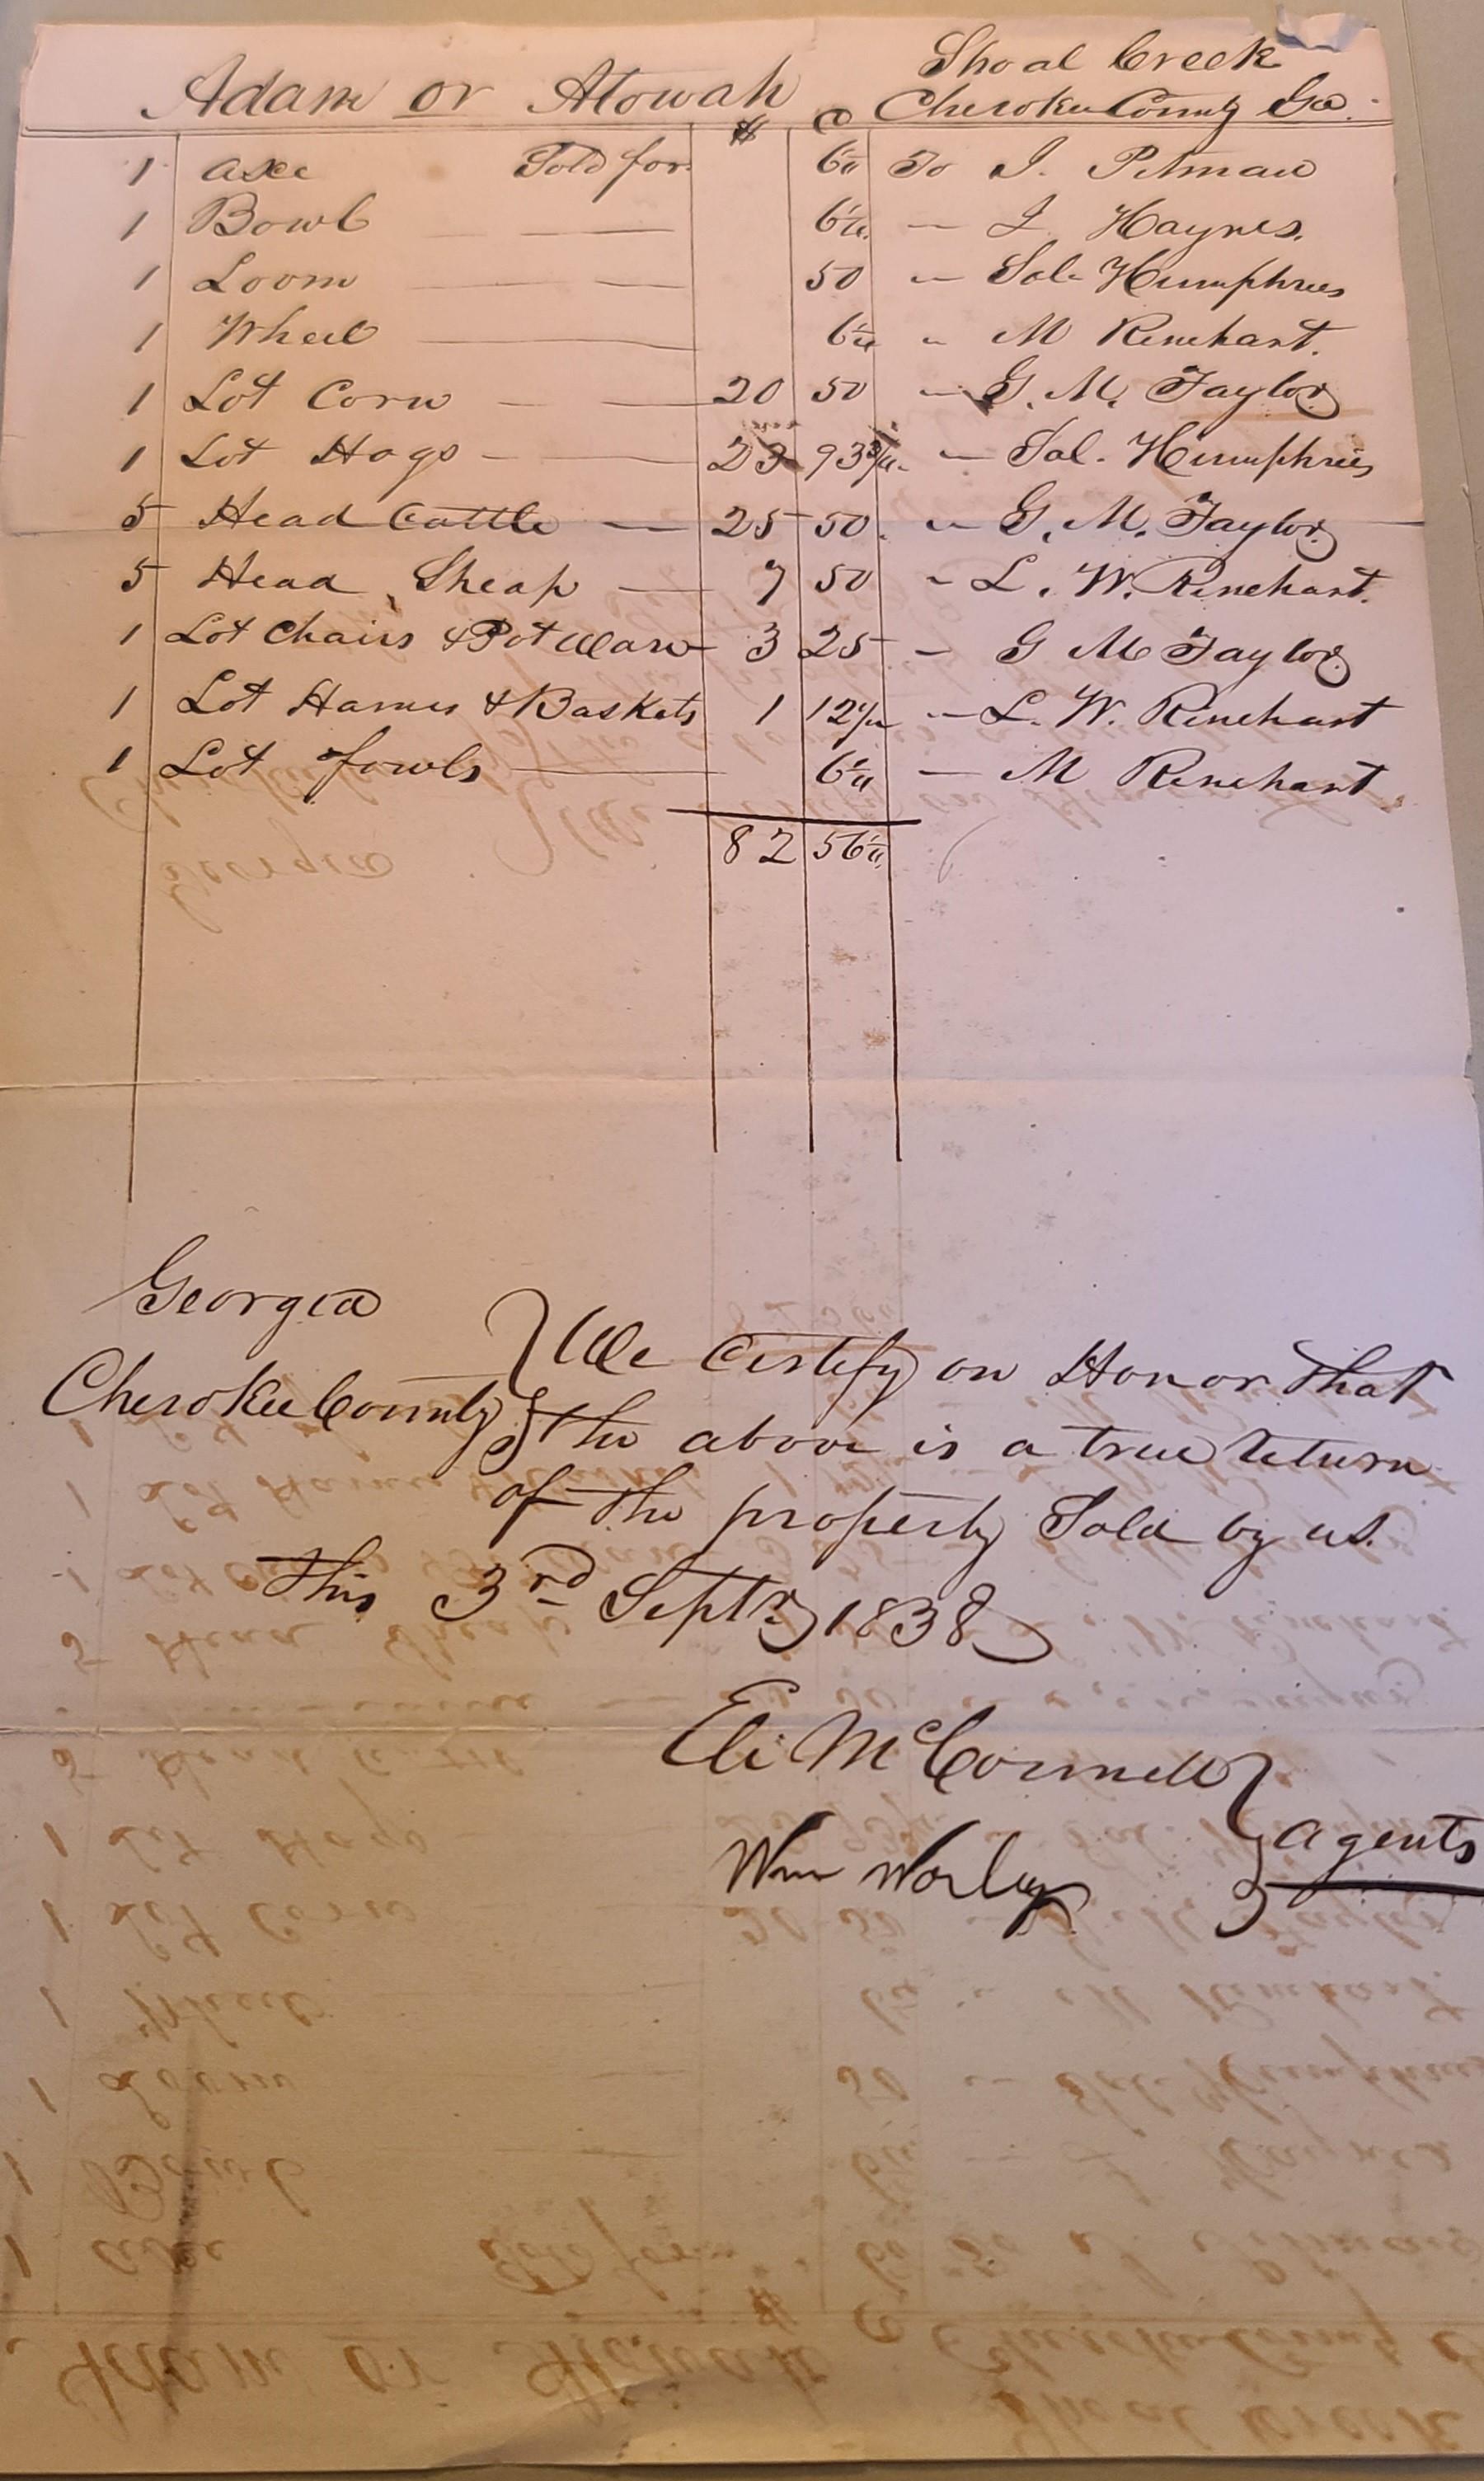 Shoal Creek
Adam or Atowah $ C Cherokee County Ga.
1 axe Sold for 6¼ To I. Pitman
1 Bowl — — 6¼ — I Haynes.
1 Loom — — 50 — Sol. Humphries
1 Wheel — 6¼ " M Rinehart.
1 Lot Corn — — 20 50 — G. M. Taylor
1 Lot Hogs — — 23 93¾ — Sol. Humphries
5 Head Cattle — 25 50. — G. M. Taylor
5 Head Sheap — 7 50 - L. W. Rinehart.
1 Lot Chairs & Pot Ware 3 25 — G M Taylor
1 Lot Hames & Baskets 1 12½ — L. W. Rinehart
1 Lot fowls — 6¼ — M Rinehart
82 56¼
Georgia
Cherokee County } We Certify on Honor that
the above is a true return
of the property Sold by us.
this 3rd Septr 1838
Eli McConnell
Wm Worley } agents